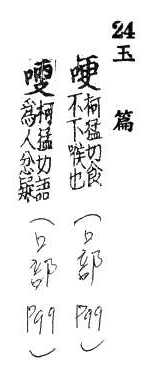 24 玉篇
哽柯猛切食不下喉也(口部 P99)
柯猛切語為人忿疑(口部 P99)